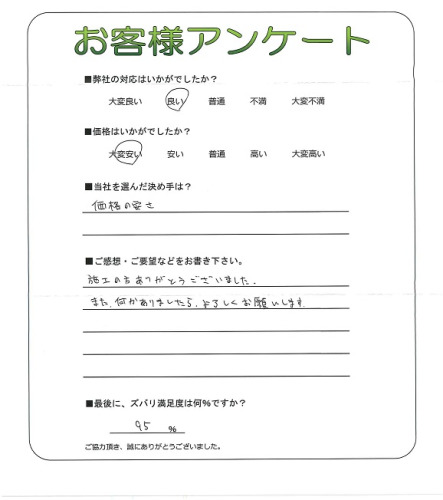 お客様アンケート
■弊社の対応はいかがでしたか？
大変良い 良い 普通 不満 大変不満
■価格はいかがでしたか？
大変安い 安い 普通 高い 大変高い
■当社を選んだ決め手は？
価格の安さ
■ご感想・ご要望などをお書き下さい。
施工の方ありがとうございました。
また、何かありましたら、よろしくお願いします。
■最後に、ズバリ満足度は何％ですか？
95 %
ご協力頂き、誠にありがとうございました。